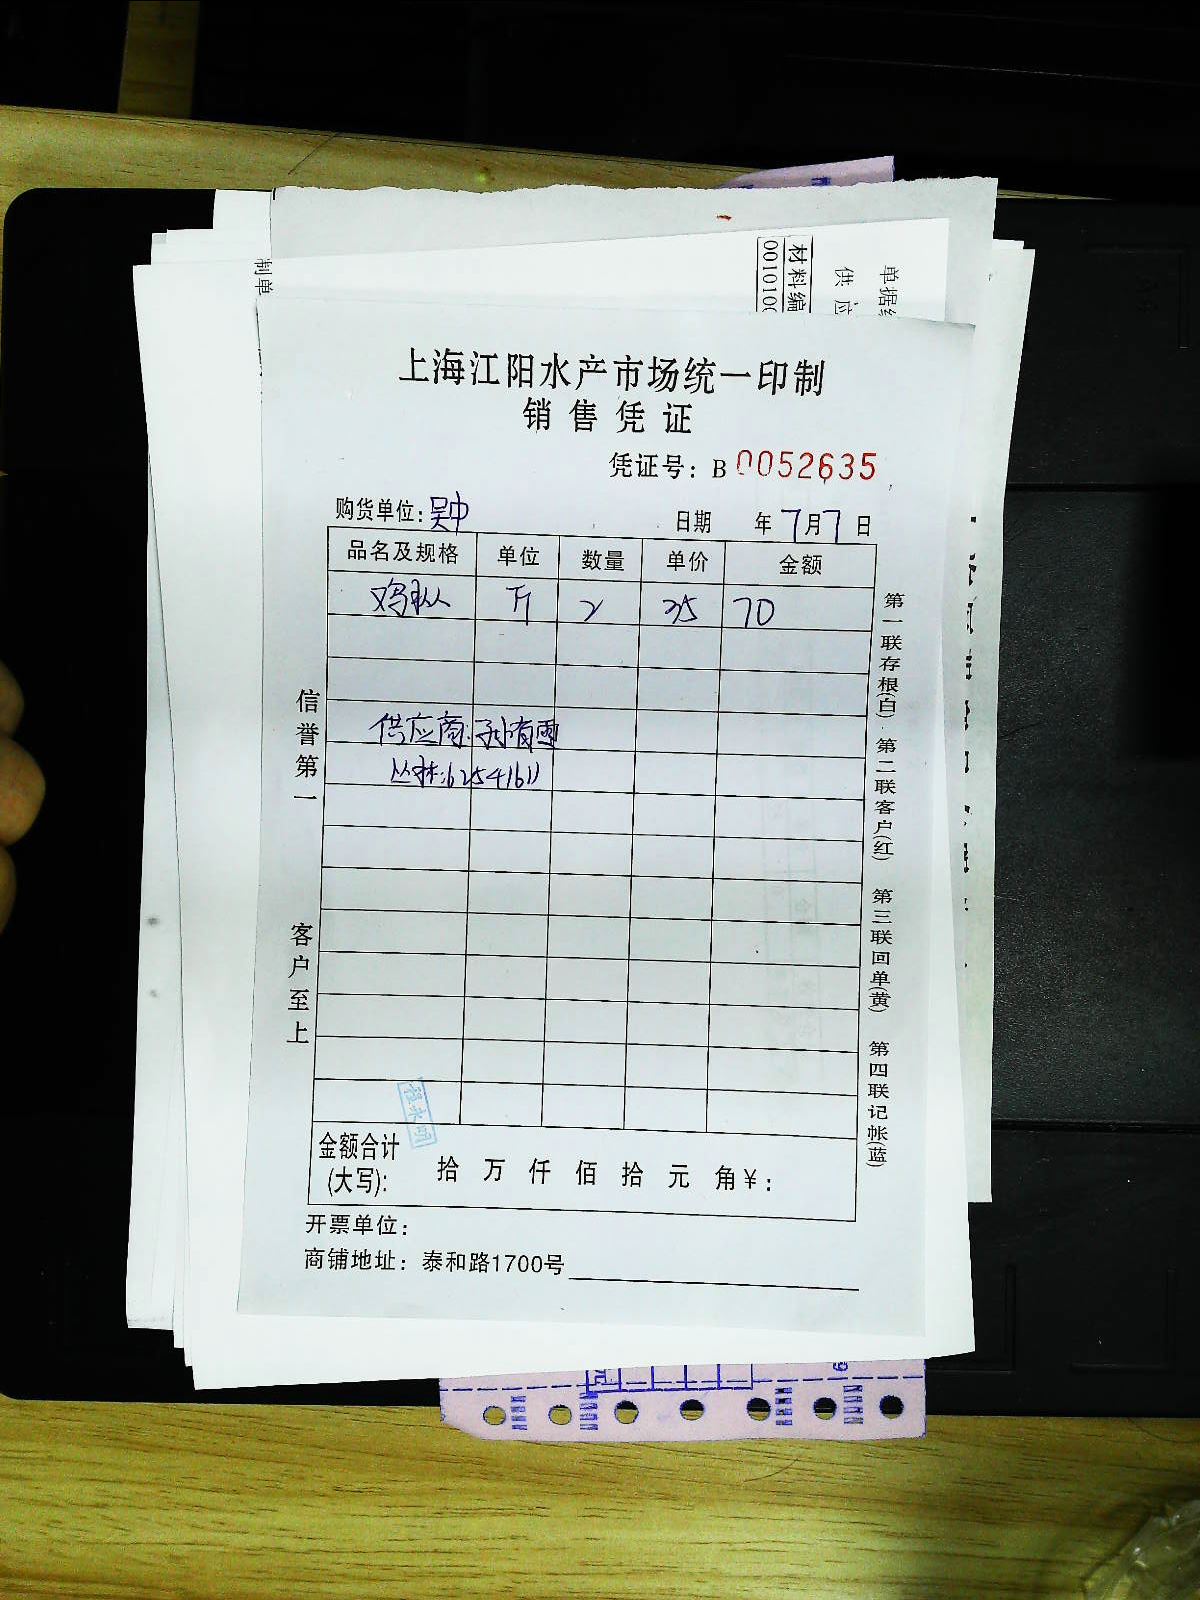 制单
材料编
0010100
供应
单据
上海江阳水产市场统一印制
销售凭证
凭证号：B 0052635
购货单位：吴中
日期 年7月7日
品名及规格 单位 数量 单价 金额
鸡枞 斤 2 35 70
供应商：孙有雷
丛林：6254161
信誉第一
客户至上
第一联存根(白)
第二联客户(红)
第三联回单(黄)
第四联记帐(蓝)
程木明
金额合计
(大写)： 拾 万 仟 佰 拾 元 角 ¥：
开票单位：
商铺地址：泰和路1700号